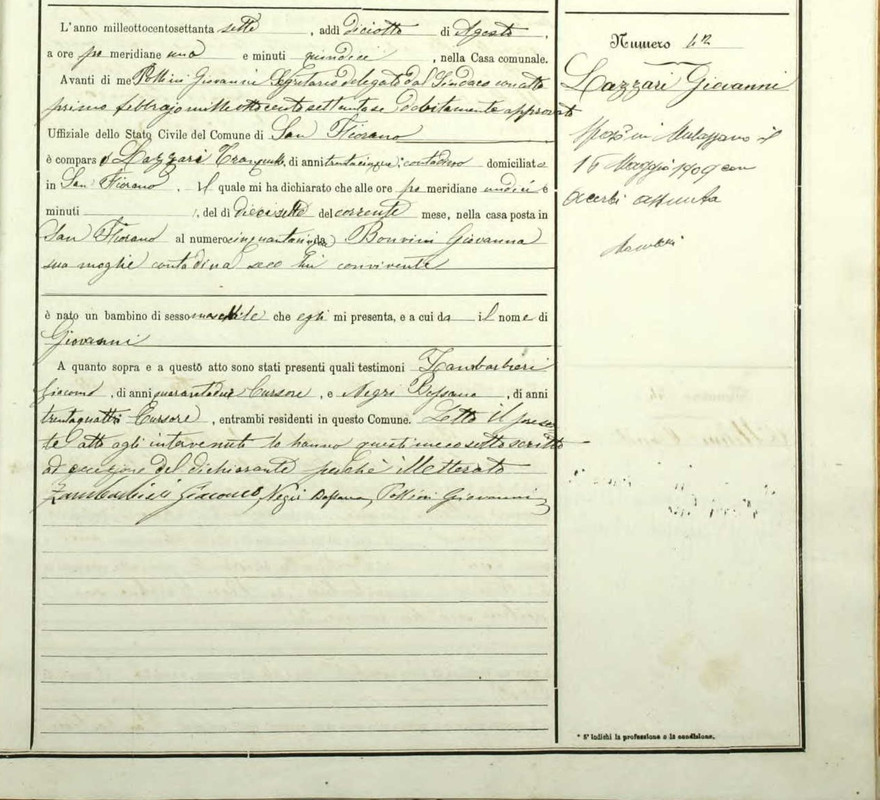 L'anno milleottocentosettanta sette, addì diciotto di Agosto,
a ore po meridiane una e minuti quindici, nella Casa comunale.
Avanti di me Pollini Giovanni Segretario delegato dal Sindaco con atto
primo febbrajo mille otto cento settantasei debitamente approvato
Uffiziale dello Stato Civile del Comune di San Fiorano
è comparso Lazzari Tranquillo, di anni trentacinque, contadino domiciliato
in San Fiorano, il quale mi ha dichiarato che alle ore po meridiane undici e
minuti, del dì diecisette del corrente mese, nella casa posta in
San Fiorano al numero cinquantuno da Bonvini Giovanna
sua moglie contadina seco lui convivente
è nato un bambino di sesso maschile che egli mi presenta, e a cui da il nome di
Giovanni
A quanto sopra e a questo atto sono stati presenti quali testimoni Zambarbieri
Giacomo, di anni quarantadue Cursore, e Negri Bassano, di anni
trentaquattro Cursore, entrambi residenti in questo Comune. Letto il presen-
te atto agli intervenuti lo hanno questi meco sottoscritto
ad eccezione del dichiarante perché illetterato
Zambarbieri Giacomo, Negri Bassano, Pollini Giovanni
Numero 42
Lazzari Giovanni
Sposò in Mulazzano il
16 Maggio 1909 con
Acerbi Assunta
* S' indichi la professione o la condizione.